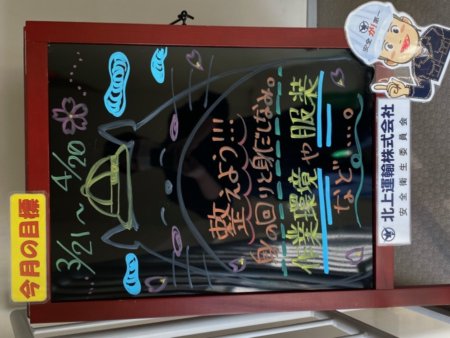 安全 第一
北上運輸株式会社
安全衛生委員会
今月の目標
3/21〜4/20
整えよう!!!
身の回りと身だしなみ。
作業環境や服装
など…。